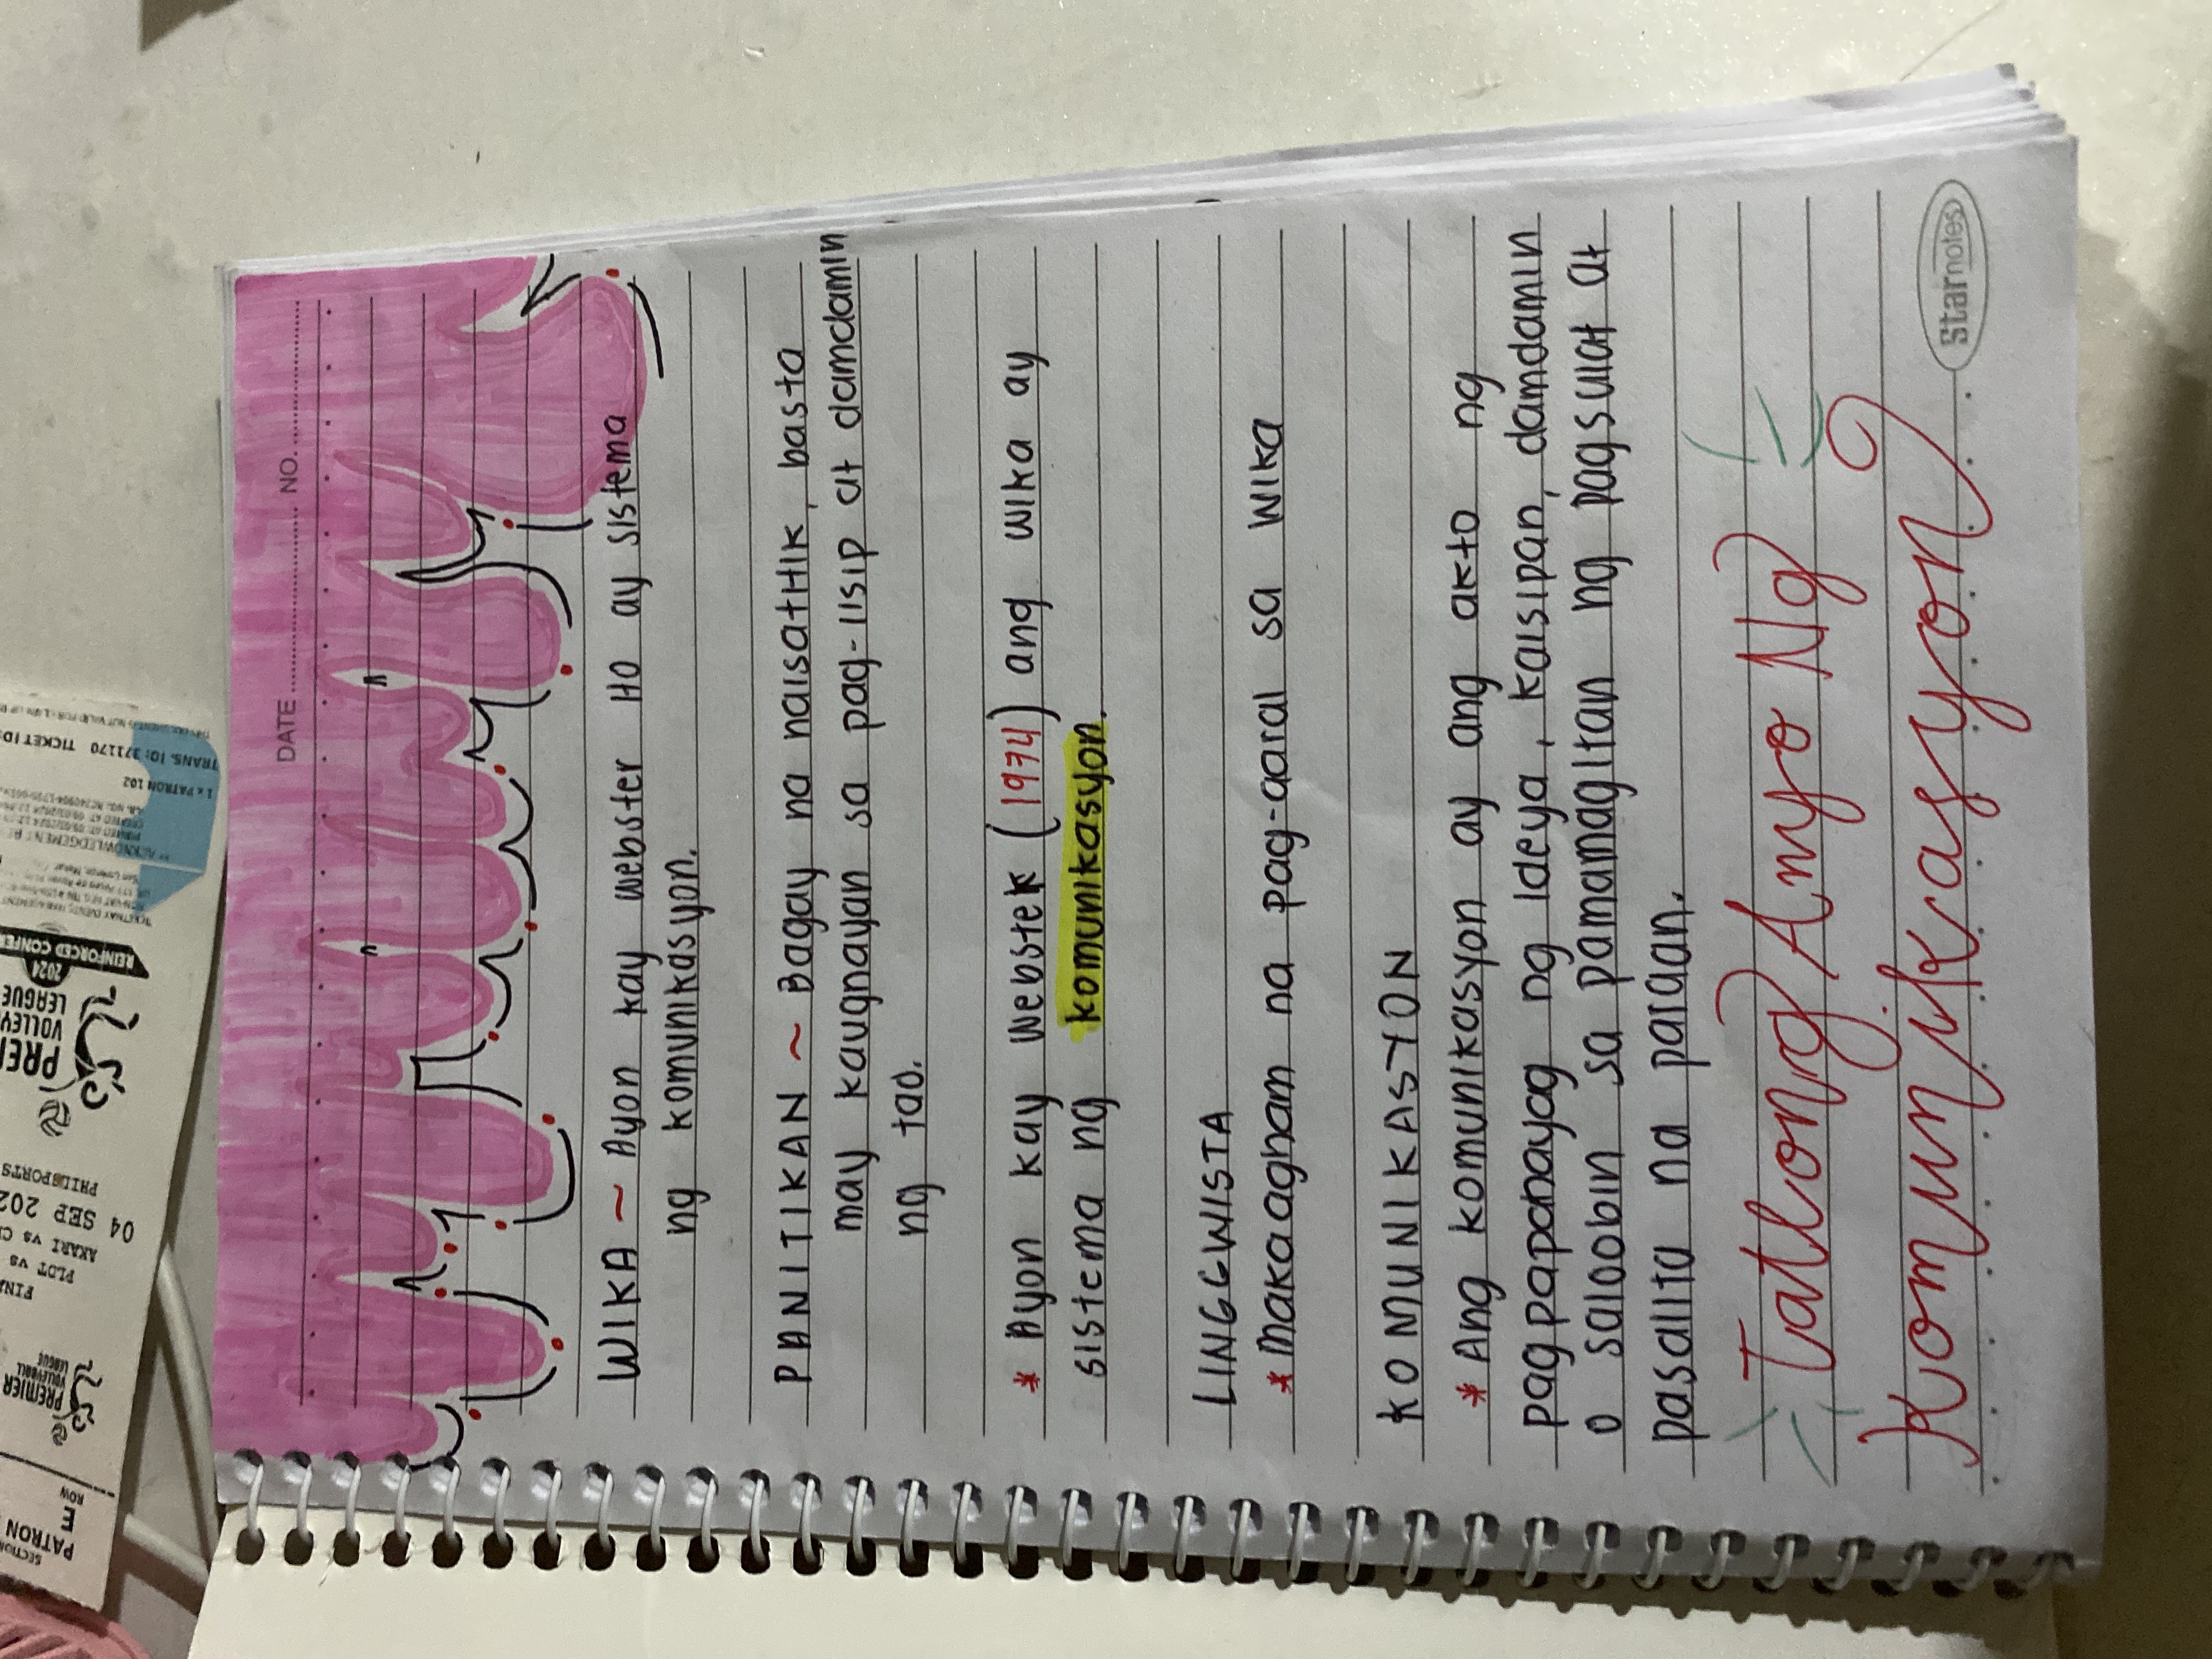 SECTION
PATRON
E
ROW
PREMIER
VOLLEYBALL
LEAGUE
PLDT vs
AKARI vs
04 SEP 202
PHILSPORTS
VOLLEY
LEAGUE
2024
REINFORCED
1 x PATRON 102
TRANS. ID: 371170 TICKET ID:
DATE NO.
WIKA ~ Ayon kay webster ito ay sistema
ng komunikasyon.
PANITIKAN ~ Bagay na naisatitik, basta
may kaugnayan sa pag-iisip at damdamin
ng tao.
* Ayon kay Webstek (1974) ang wika ay
sistema ng komunikasyon.
LINGGWISTA
* makaagham na pag-aaral sa wika
KOMUNIKASYON
* Ang komunikasyon ay ang akto ng
pagpapahayag ng ideya, kaisipan, damdamin
o saloobin sa pamamagitan ng pagsulat at
pasalita na paraan.
Tatlong Anyo Ng
Komunikasyon
Starnotes